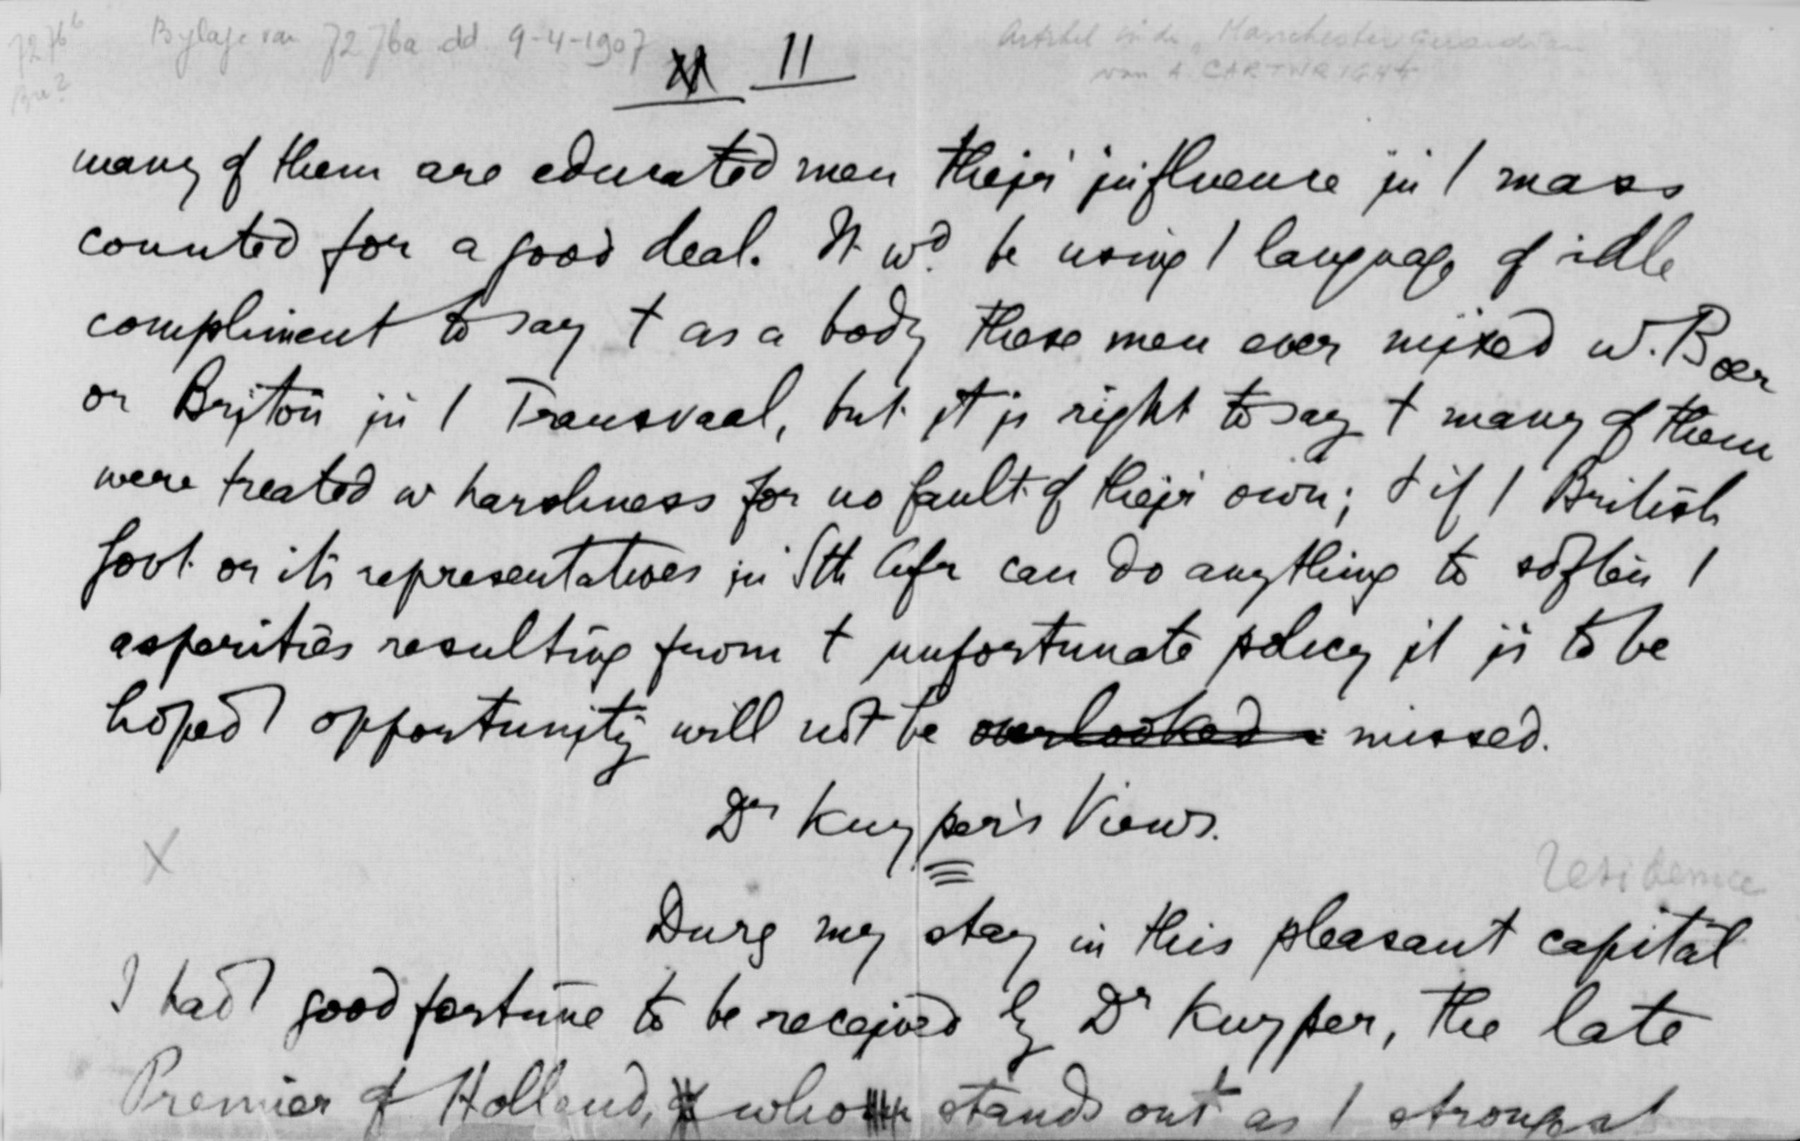 7276b Bylage van 7276a dd. 9-4-1907 Artikel in de "Manchester Guardian
Bu? van A. CARTWRIGHT
11
many of them are educated men their influence in / mass
counted for a good deal. It wd. be using / language of idle
compliment to say t as a body these men ever mixed w. Boer
or Briton in / Transvaal, but it is right to say t many of them
were treated w harshness for no fault of their own; & if / British
Govt. or its representatives in Sth Afr can do anything to soften /
asperities resulting from t unfortunate policy it is to be
hoped / opportunity will not be overlooked missed.
Dr Kuyper's Views.
X
residence
Durg my stay in this pleasant capital
I had / good fortune to be received by Dr Kuyper, the late
Premier of Holland, who stands out as / strongest